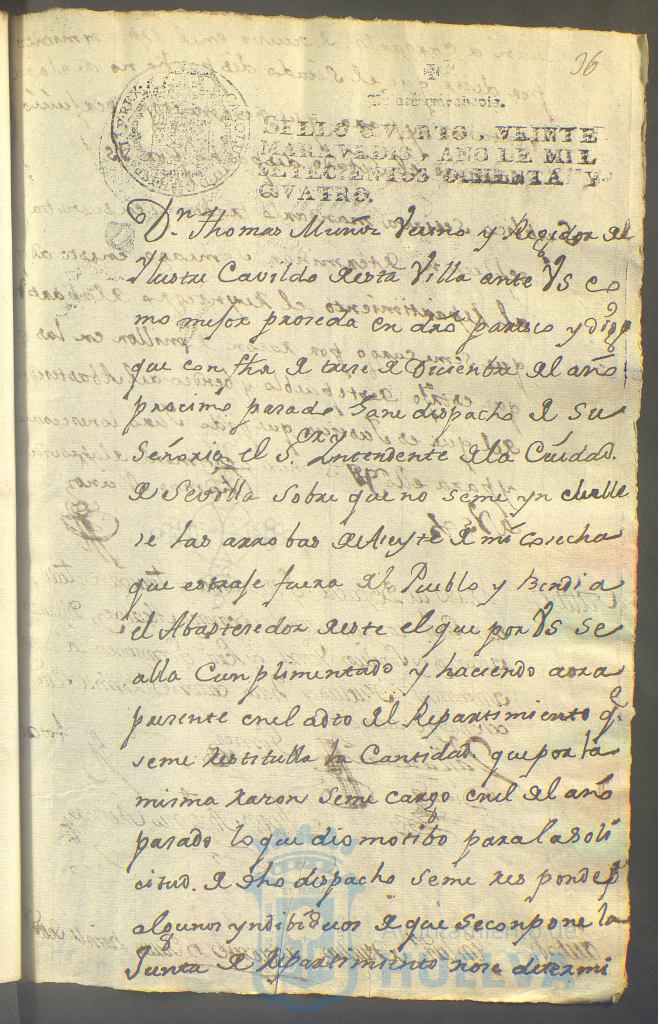 36
SELLO QVARTO, VEINTE
MARAVEDIS, AÑO DE MIL
SETECIENTOS OCHENTA Y
QVATRO.
Dn. Thomas Muñiz Vecino y Regidor del
Ylustre Cavildo de esta Villa ante VS co
mo mejor proceda en dro paresco y digo
que con fha de trese de Diciembre del año
procimo pasado gane dispacho de Su
Señoria el Sr. Yntendente de la Ciudad
de Sevilla sobre que no seme ynclulle
se las arrobas de Aseyte de mi Cosecha
que estraje fuera del Pueblo y bendi a
el Abastesedor de este el que por VS se
alla Cumplimentado y haciendo aora
presente enel acto del Repartimiento q.
seme restitulla la Cantidad que por la
misma raron seme cargo enel del año
pasado lo que dio motibo para la soli
citud de dho dispacho seme responde p
algunos yndibiduos de que se conpone la
Junta de Repartimiento no se determi
HUELVA